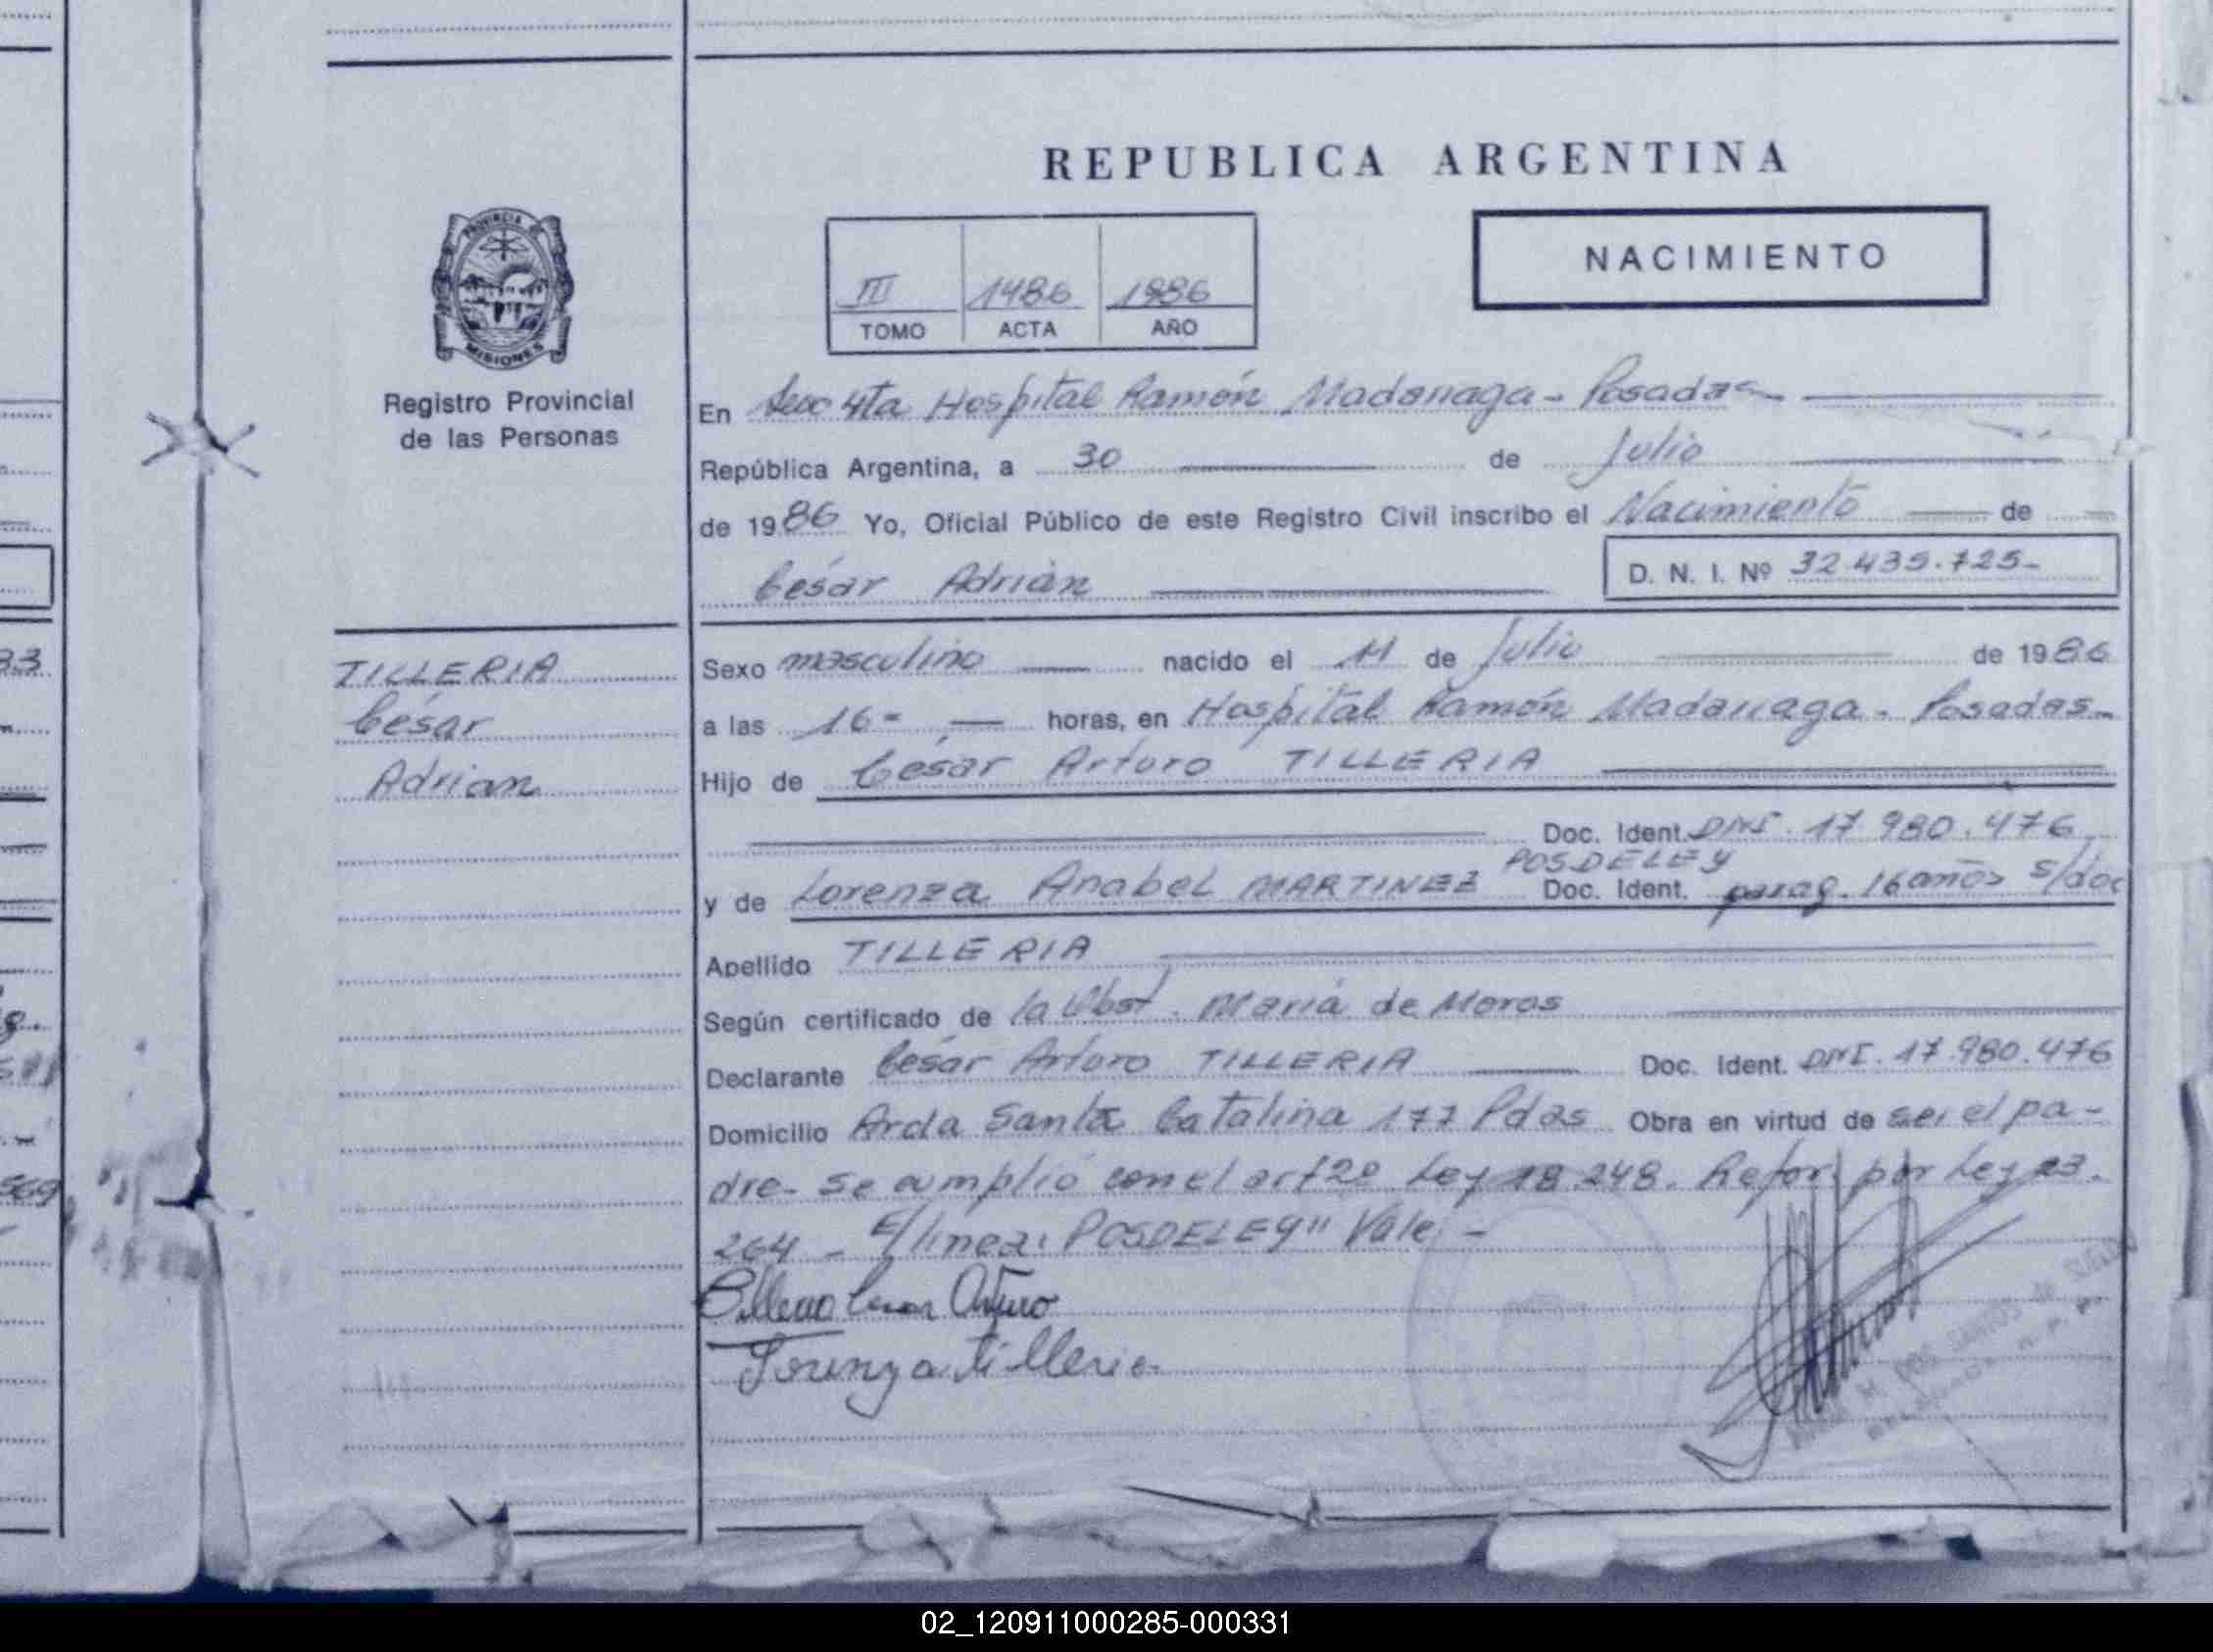 REPUBLICA ARGENTINA
NACIMIENTO
III 1486 1986
TOMO ACTA AÑO
PROVINCIA DE
MISIONES
Registro Provincial
de las Personas
En Secc 4ta Hospital Ramón Madariaga - Posadas
República Argentina, a 30 de Julio
de 1986 Yo, Oficial Público de este Registro Civil inscribo el Nacimiento de
César Adrián
D. N. I. Nº 32.435.725-
TILLERIA
César
Adrian
Sexo masculino nacido el 11 de Julio de 1986
a las 16- horas, en Hospital Ramón Madariaga - Posadas-
Hijo de César Arturo TILLERIA
Doc. Ident. DNI. 17.980.476
POSDELEY
y de Lorenza Anabel MARTINEZ Doc. Ident. parag. 16 años s/doc
Apellido TILLERIA
Según certificado de la Obst. María de Moros
Declarante César Arturo TILLERIA Doc. Ident. DNI. 17.980.476
Domicilio Arda Santa Catalina 177 Pdas Obra en virtud de ser el pa-
dre- Se cumplió con el art 2º Ley 18.248. Refor. por Ley 23.
264 - E/linea: POSDELEY" Vale -
Cesar Arturo
Lorenza Tilleria
M. DOS SANTOS de
02_120911000285-000331